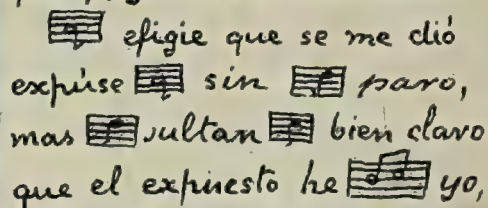 efigie que se me dió
expúse sin paro,
mas sultan bien claro
que el expuesto he yo,